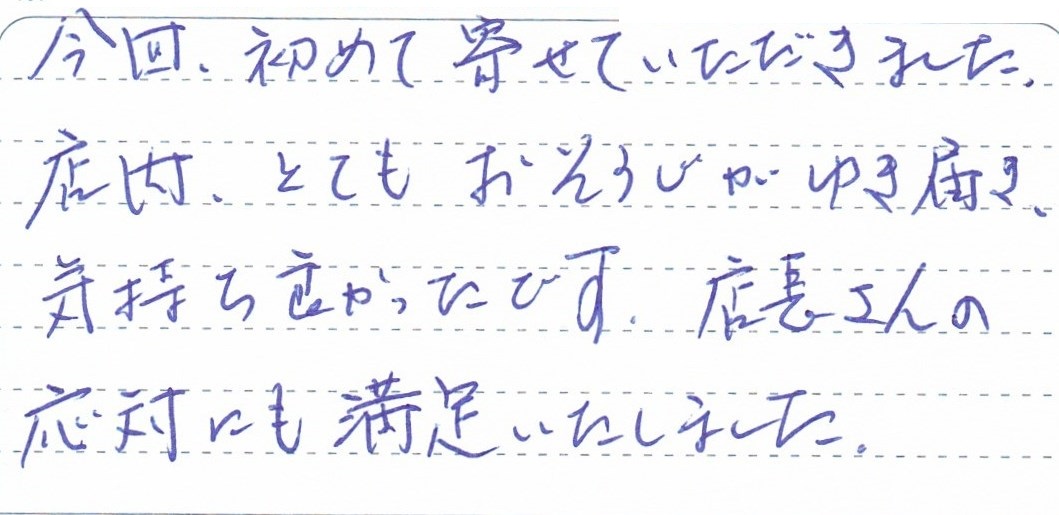 今回、初めて寄せていただきました。
店内、とても おそうじが ゆき届き、
気持ち良かったです。店長さんの
応対にも満足いたしました。